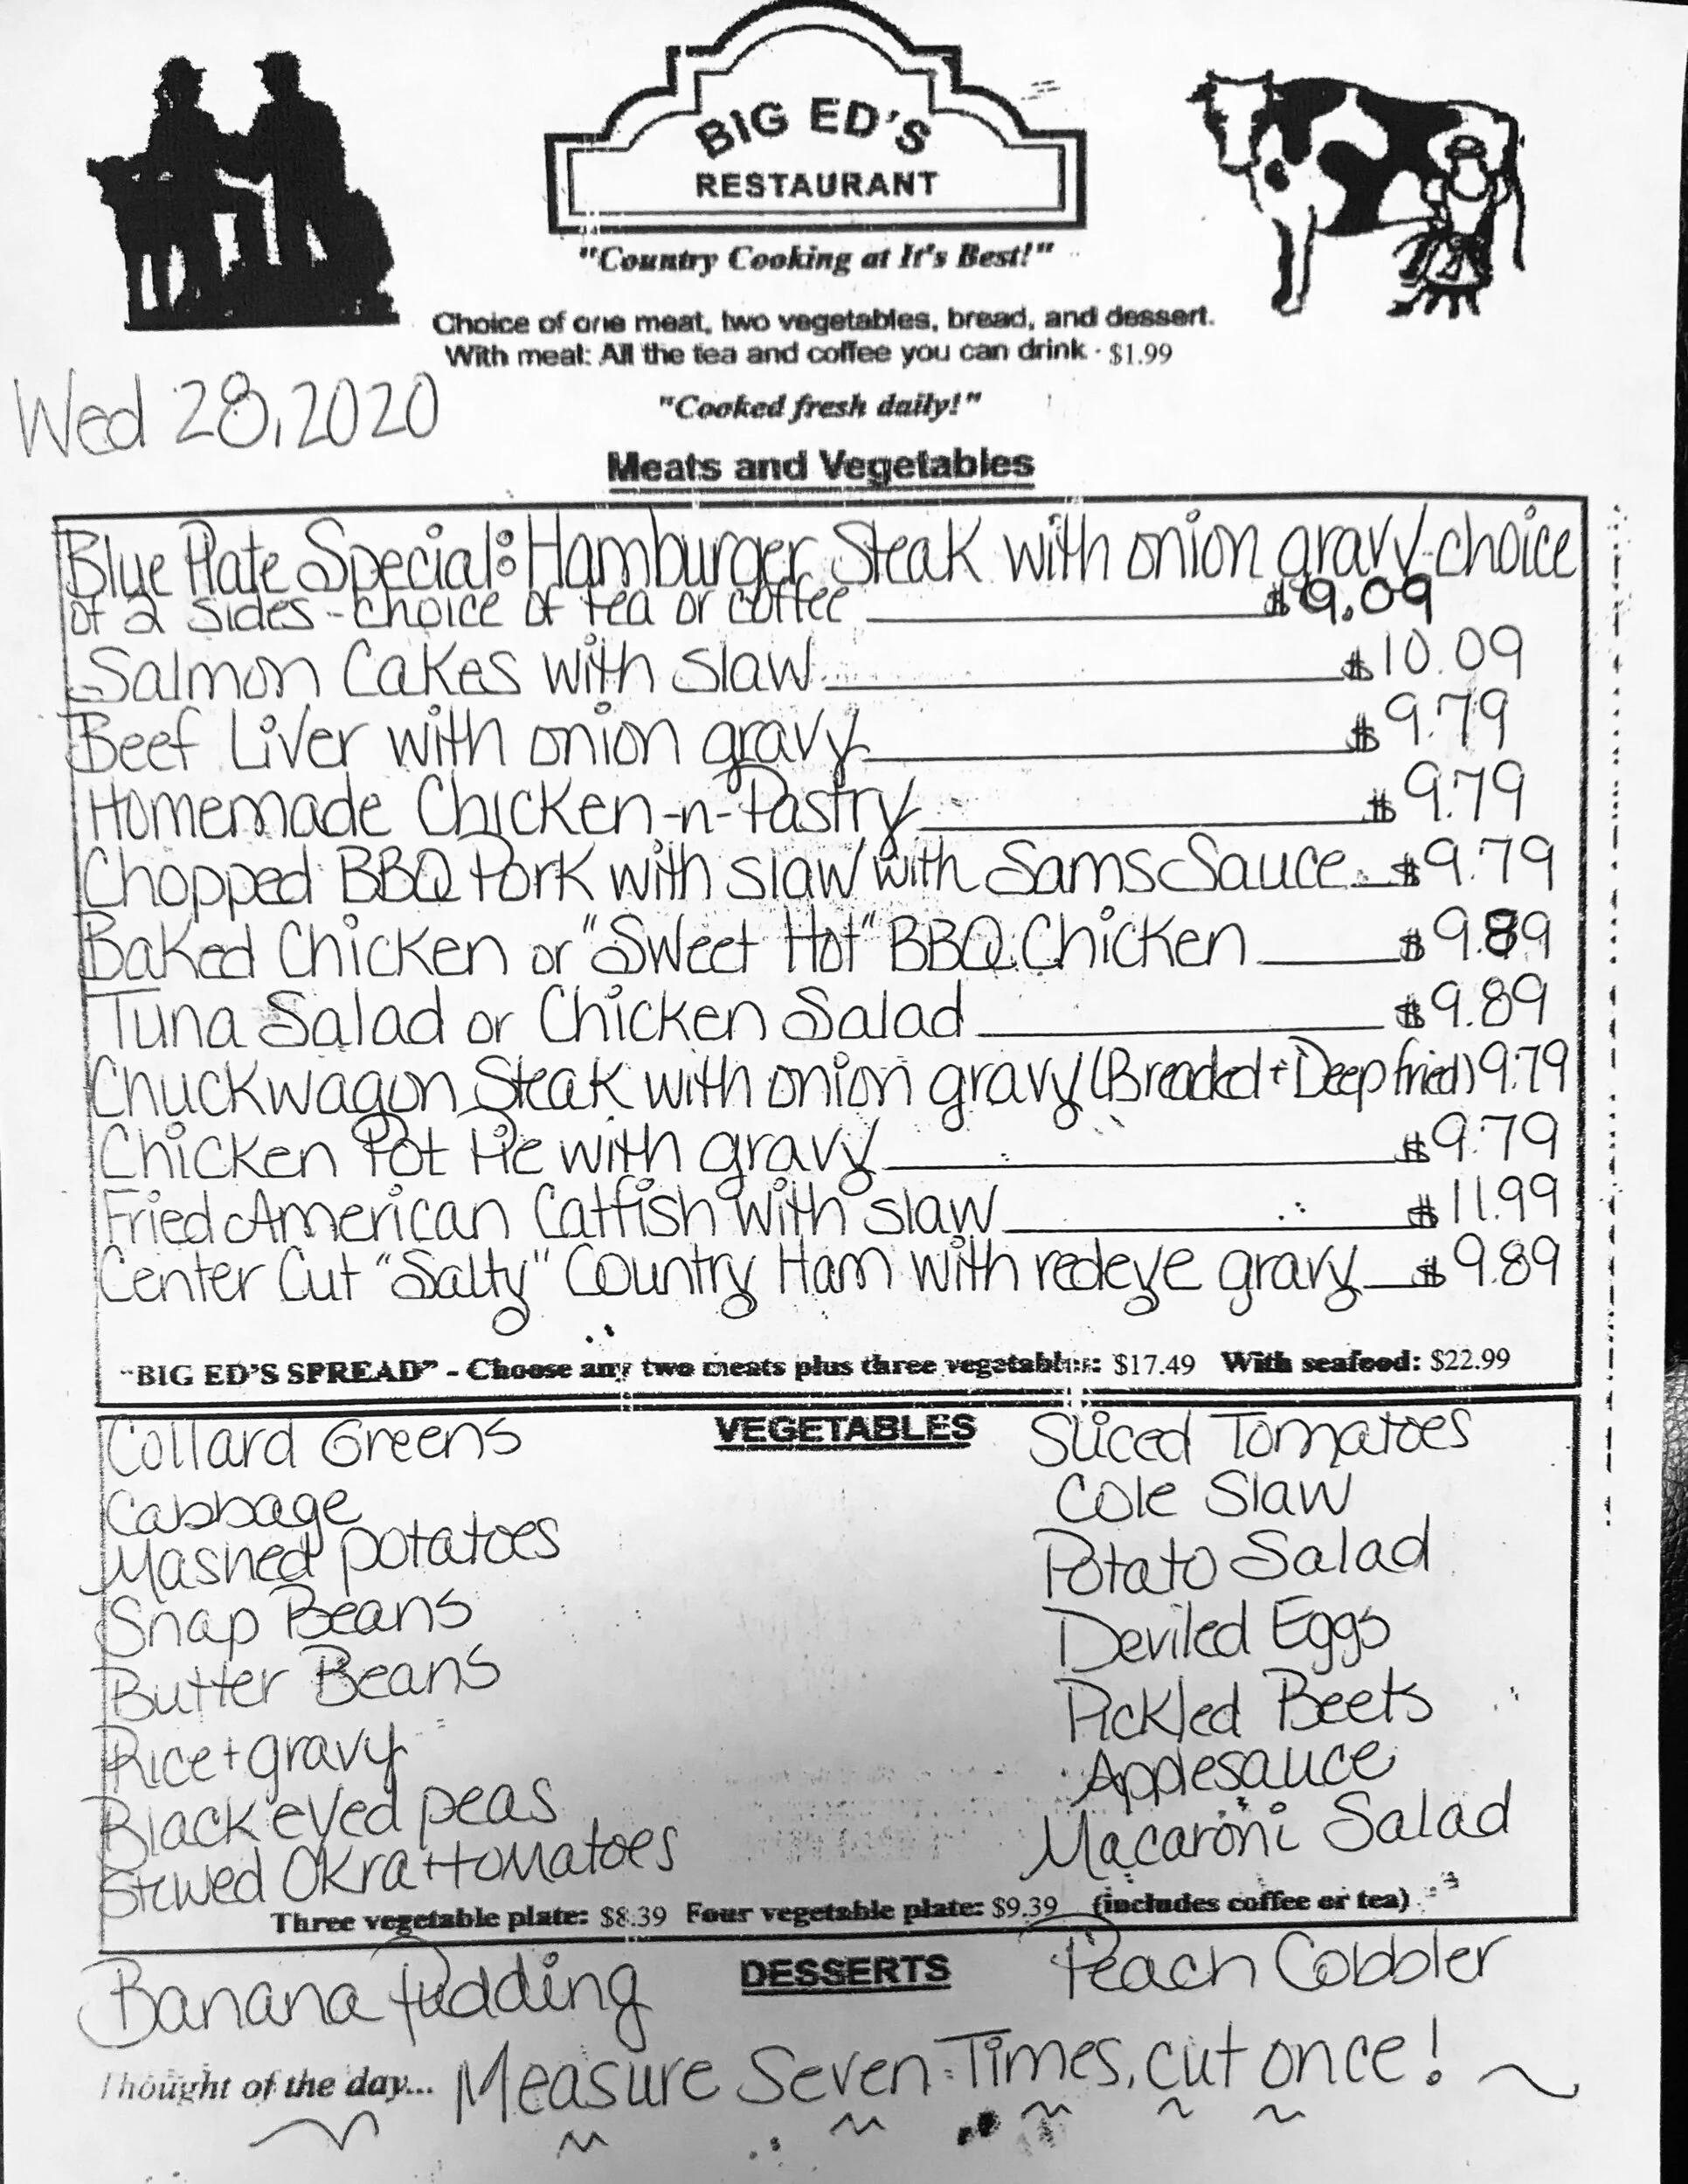 BIG ED'S
RESTAURANT
"Country Cooking at It's Best!"
Choice of one meat, two vegetables, bread, and dessert.
With meal: All the tea and coffee you can drink - $1.99
Wed 28, 2020
"Cooked fresh daily!"
Meats and Vegetables
Blue Plate Special: Hamburger Steak with onion gravy-choice
of 2 sides - choice of tea or coffee $9.09
Salmon Cakes with slaw $10.09
Beef Liver with onion gravy $9.79
Homemade Chicken-n-Pastry $9.79
Chopped BBQ Pork with slaw with Sams Sauce $9.79
Baked Chicken or "Sweet Hot" BBQ Chicken $9.89
Tuna Salad or Chicken Salad $9.89
Chuckwagon Steak with onion gravy (Breaded + Deep fried) 9.79
Chicken Pot Pie with gravy $9.79
Fried American Catfish with slaw $11.99
Center Cut "Salty" Country Ham with redeye gravy $9.89
"BIG ED'S SPREAD" - Choose any two meats plus three vegetables: $17.49 With seafood: $22.99
VEGETABLES
Collard Greens
Cabbage
Mashed potatoes
Snap Beans
Butter Beans
Rice + gravy
Black eyed peas
Stewed Okra + tomatoes
Sliced Tomatoes
Cole Slaw
Potato Salad
Deviled Eggs
Pickled Beets
Applesauce
Macaroni Salad
Three vegetable plate: $8.39 Four vegetable plate: $9.39 (includes coffee or tea)
DESSERTS
Banana Pudding
Peach Cobbler
Thought of the day... Measure Seven Times, cut once!